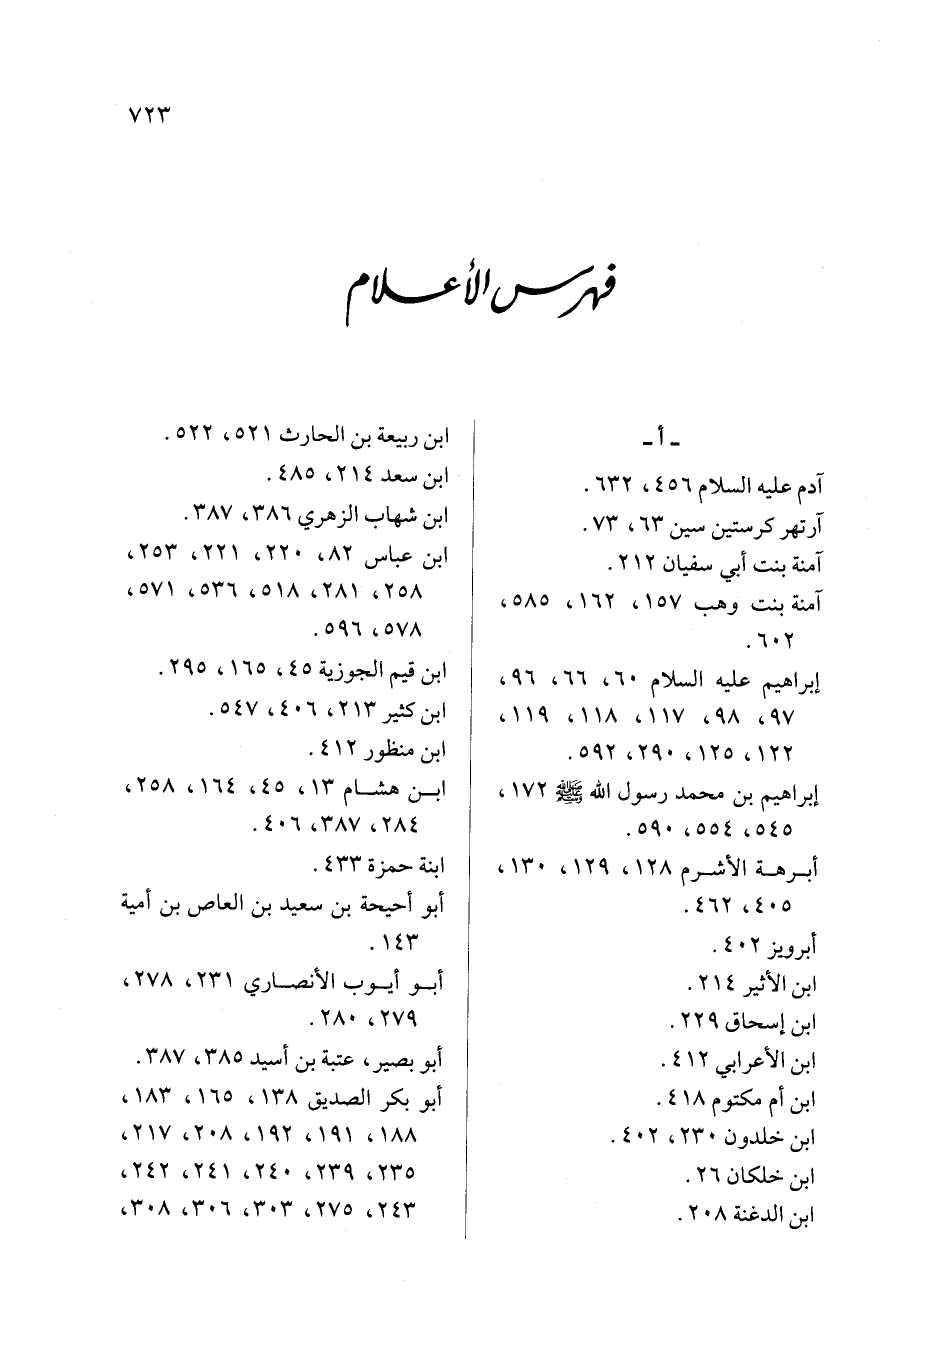 ٧٢٣
فهرس الأعلام
ـ أ ـ
آدم عليه السلام ٤٥٦، ٦٣٢.
آرتهر كرستين سين ٦٣، ٧٣.
آمنة بنت أبي سفيان ٢١٢.
آمنة بنت وهب ١٥٧، ١٦٢، ٥٨٥،
٦٠٢.
إبراهيم عليه السلام ٦٠، ٦٦، ٩٦،
٩٧، ٩٨، ١١٧، ١١٨، ١١٩،
١٢٢، ١٢٥، ٢٩٠، ٥٩٢.
إبراهيم بن محمد رسول الله ﷺ ١٧٢،
٥٤٥، ٥٥٤، ٥٩٠.
أبرهة الأشرم ١٢٨، ١٢٩، ١٣٠،
٤٠٥، ٤٦٢.
أبرويز ٤٠٢.
ابن الأثير ٢١٤.
ابن إسحاق ٢٢٩.
ابن الأعرابي ٤١٢.
ابن أم مكتوم ٤١٨.
ابن خلدون ٢٣٠، ٤٠٢.
ابن خلكان ٢٦.
ابن الدغنة ٢٠٨.
ابن ربيعة بن الحارث ٥٢١، ٥٢٢.
ابن سعد ٢١٤، ٤٨٥.
ابن شهاب الزهري ٣٨٦، ٣٨٧.
ابن عباس ٨٢، ٢٢٠، ٢٢١، ٢٥٣،
٢٥٨، ٢٨١، ٥١٨، ٥٣٦، ٥٧١،
٥٧٨، ٥٩٦.
ابن قيم الجوزية ٤٥، ١٦٥، ٢٩٥.
ابن كثير ٢١٣، ٤٠٦، ٥٤٧.
ابن منظور ٤١٢.
ابن هشام ١٣، ٤٥، ١٦٤، ٢٥٨،
٢٨٤، ٣٨٧، ٤٠٦.
ابنة حمزة ٤٣٣.
أبو أحيحة بن سعيد بن العاص بن أمية
١٤٣.
أبو أيوب الأنصاري ٢٣١، ٢٧٨،
٢٧٩، ٢٨٠.
أبو بصير، عتبة بن أسيد ٣٨٥، ٣٨٧.
أبو بكر الصديق ١٣٨، ١٦٥، ١٨٣،
١٨٨، ١٩١، ١٩٢، ٢٠٨، ٢١٧،
٢٣٥، ٢٣٩، ٢٤٠، ٢٤١، ٢٤٢،
٢٤٣، ٢٧٥، ٣٠٣، ٣٠٦، ٣٠٨،